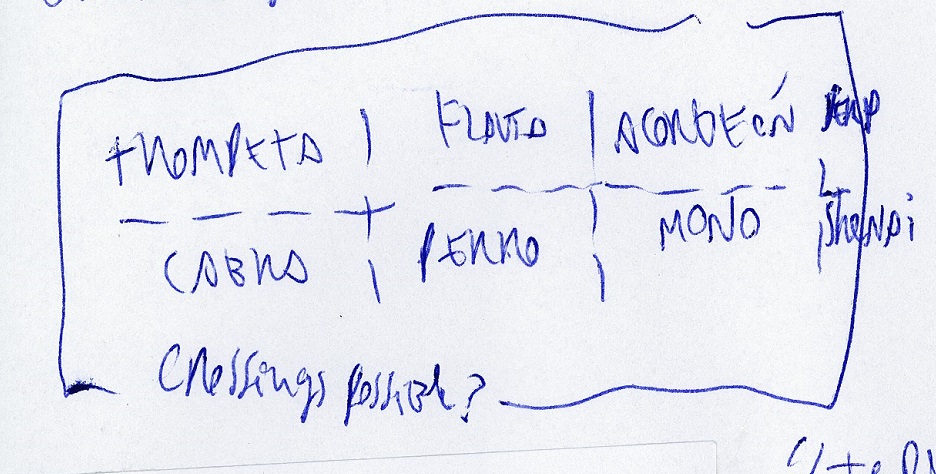 TROMPETA | FLAUTA | ACORDEÓN
CABRA | PERRO | MONO
Crossings possible?